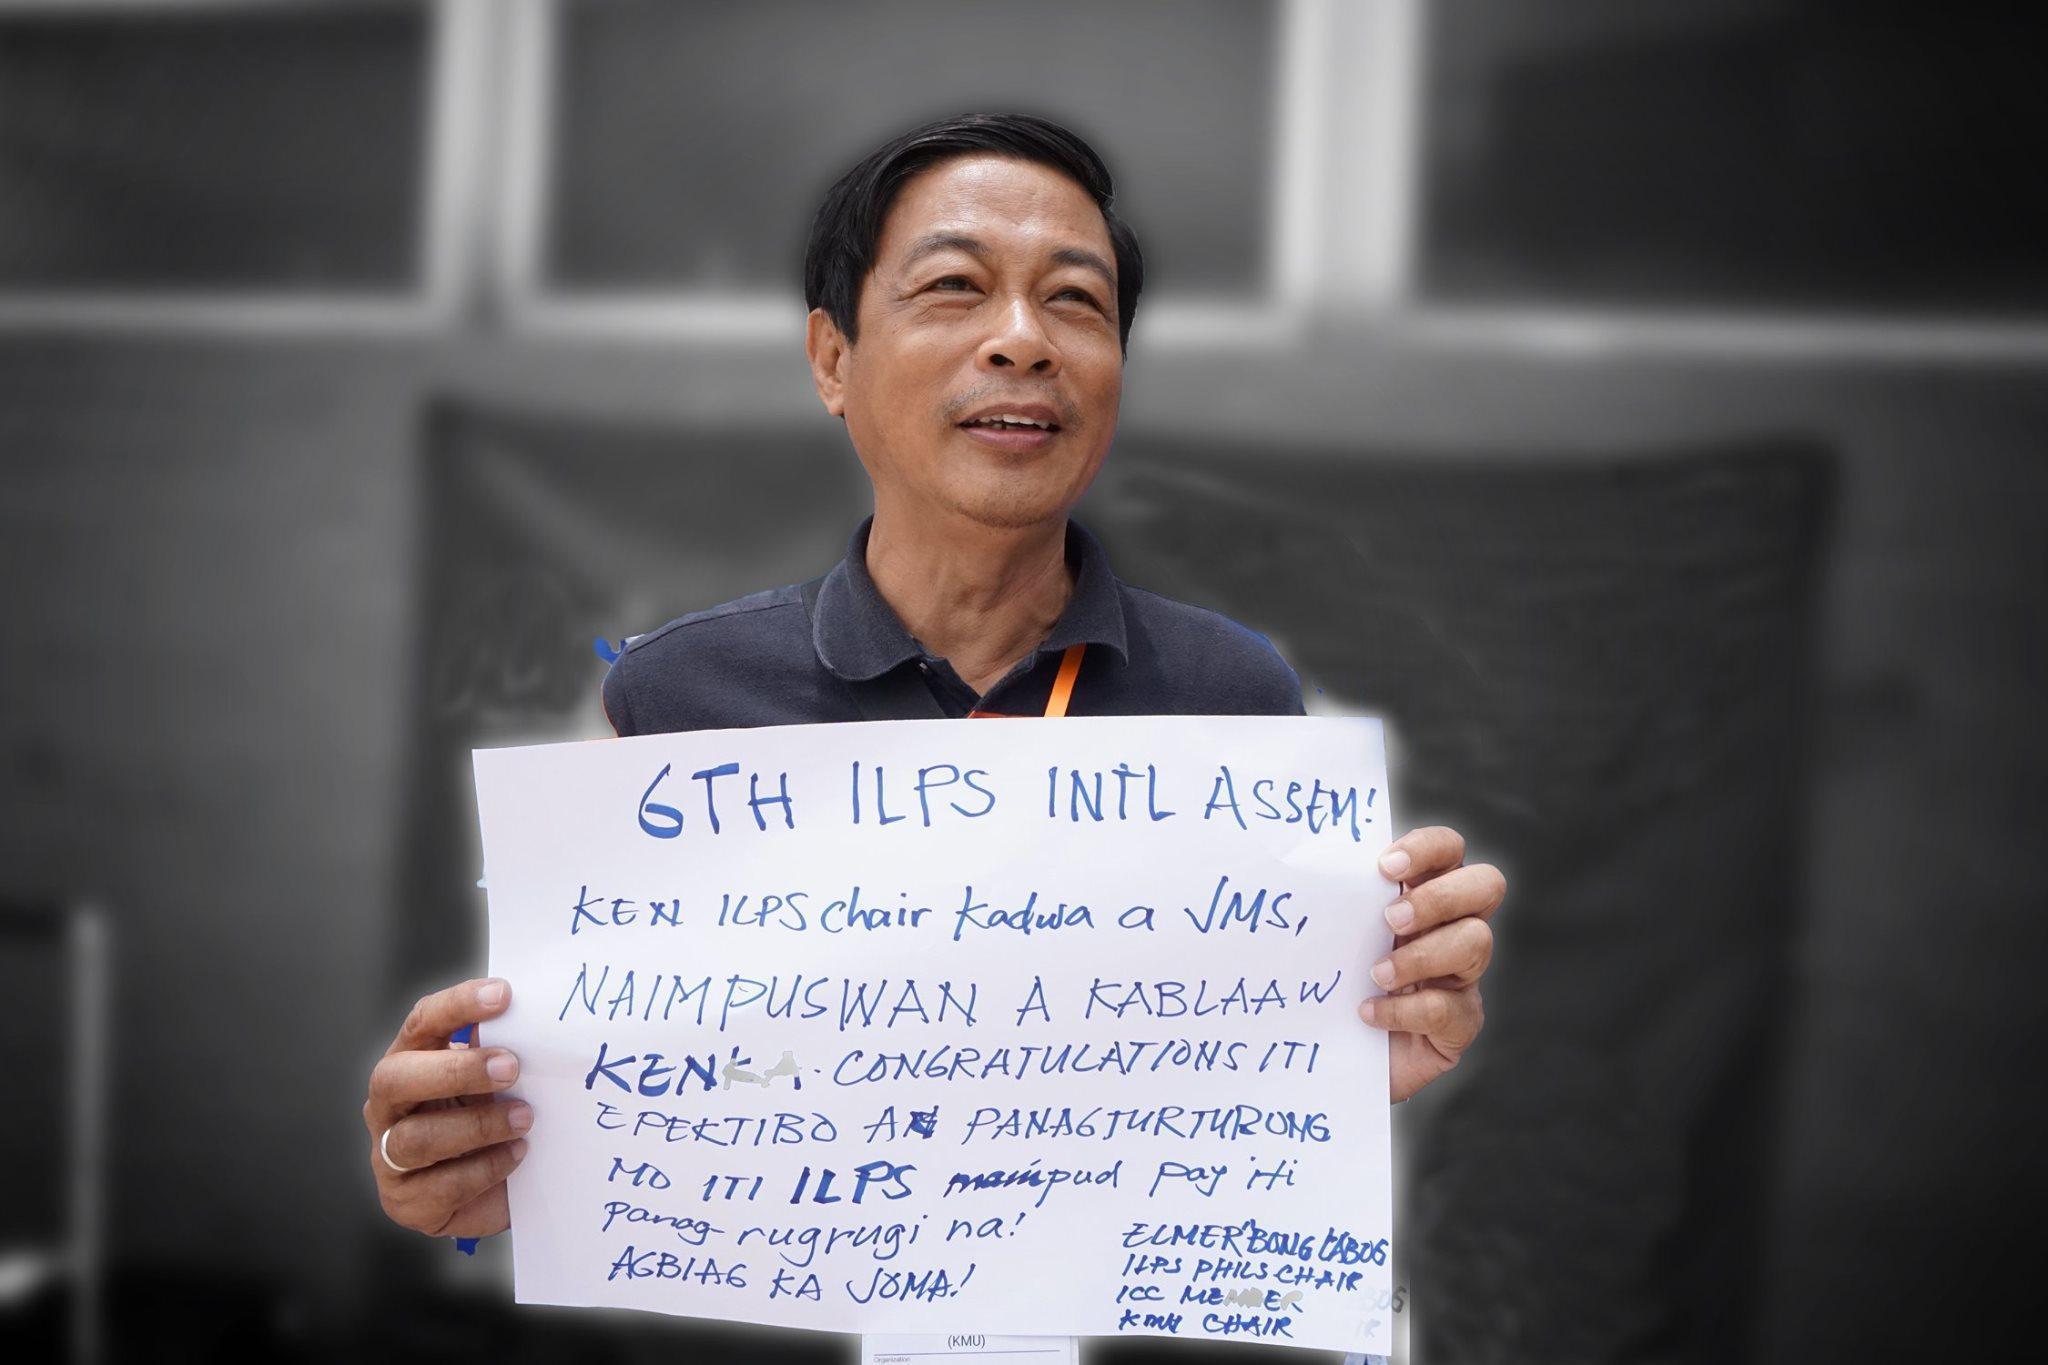 6TH ILPS INTL ASSEM!
KEN ILPS chair kadwa a JMS,
NAIMPUSWAN A KABLAAW
KENKA. CONGRATULATIONS ITI
EPEKTIBO AN PANAGTURTURONG
MO ITI ILPS pud pay iti
panag-rugrugi na!
AGBIAG KA JOMA!
ELMER "BONG" LABOG
ILPS PHILS CHAIR
ICC MEMBER
KMU CHAIR
(KMU)
Organization